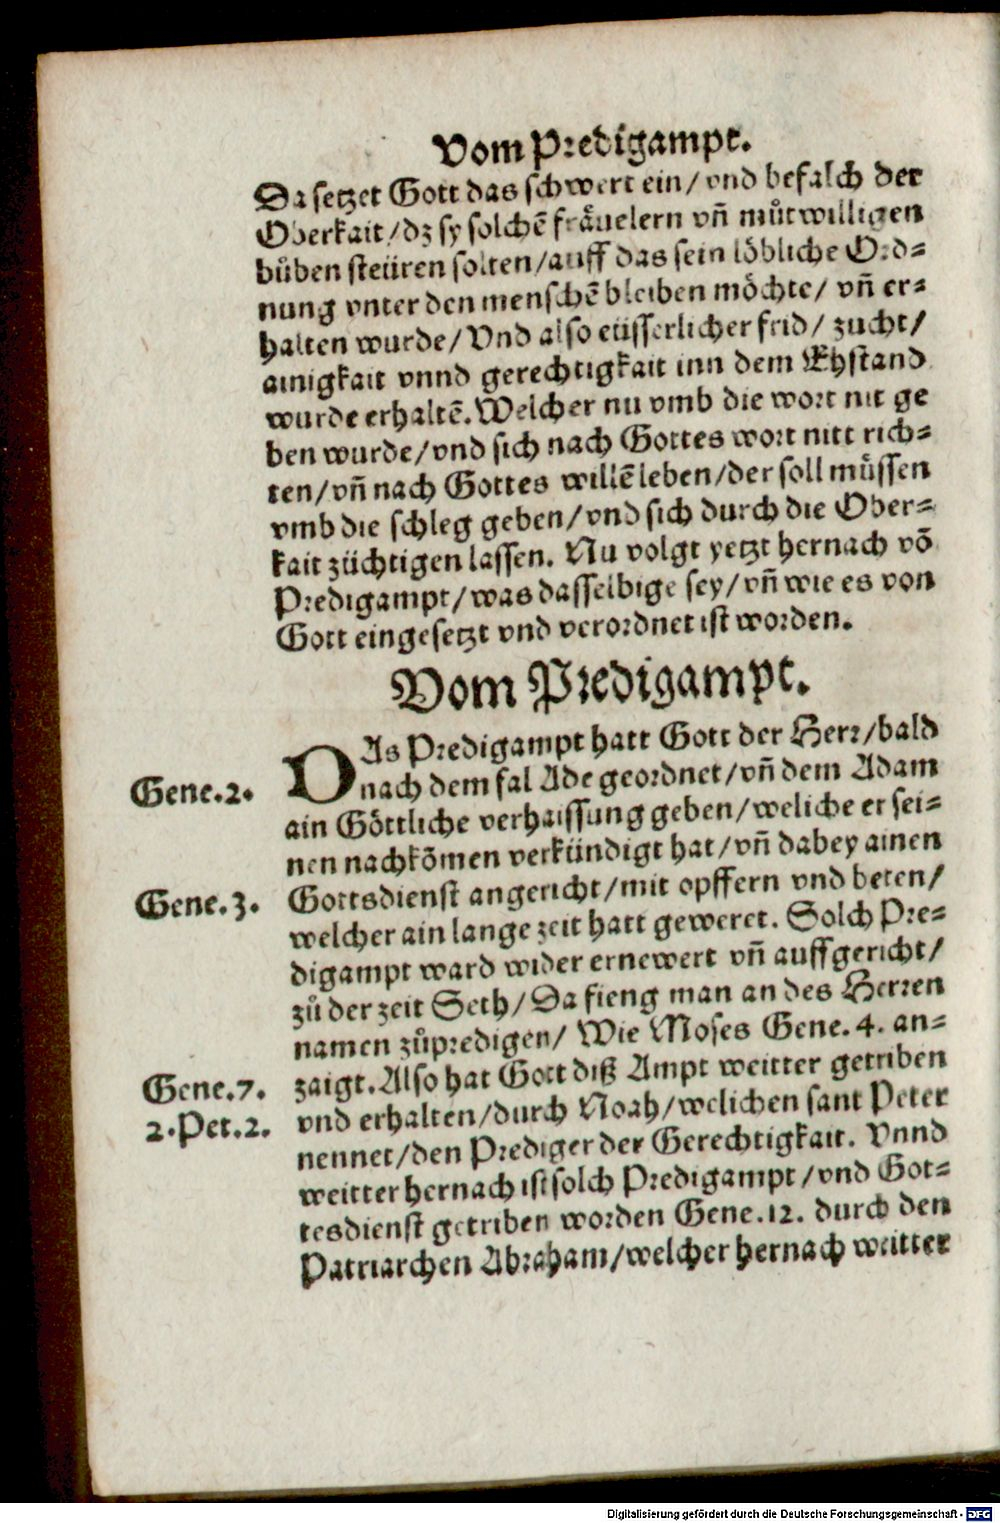 Vom Predigampt.
Da setzet Gott das schwert ein/ vnd befalch der
Oberkait/dz sy solchẽ fräuelern vñ můtwilligen
bůben steüren solten/auff das sein löbliche Ord=
nung vnter den menschẽ bleiben möchte/ vñ er=
halten wurde/ Vnd also eüsserlicher frid/ zucht/
ainigkait vnnd gerechtigkait inn dem Ehstand
wurde erhaltẽ. Welcher nu vmb die wort nit ge
ben wurde/vnd sich nach Gottes wort nitt rich=
ten/vñ nach Gottes willẽ leben/der soll müssen
vmb die schleg geben/vnd sich durch die Ober=
kait züchtigen lassen. Nu volgt yetzt hernach võ
Predigampt/was dasselbige sey/vñ wie es von
Gott eingesetzt vnd verordnet ist worden.
Vom Predigampt.
DAs Predigampt hatt Gott der Herr/bald
Gene.2. nach dem fal Ade geordnet/vñ dem Adam
ain Göttliche verhaissung geben/weliche er sei=
nen nachkõmen verkündigt hat/vñ dabey ainen
Gene.3. Gottsdienst angericht/mit opffern vnd beten/
welcher ain lange zeit hatt geweret. Solch Pre=
digampt ward wider ernewert vñ auffgericht/
zů der zeit Seth/ Da fieng man an des Herren
namen zůpredigen/ Wie Moses Gene. 4. an=
Gene.7. zaigt. Also hat Gott diß Ampt weitter getriben
2.Pet.2. vnd erhalten/durch Noah/welichen sant Peter
nennet/den Prediger der Gerechtigkait. Vnnd
weitter hernach ist solch Predigampt/vnd Got=
tesdienst getriben worden Gene.12. durch den
Patriarchen Abraham/welcher hernach weitter
Digitalisierung gefördert durch die Deutsche Forschungsgemeinschaft - DFG